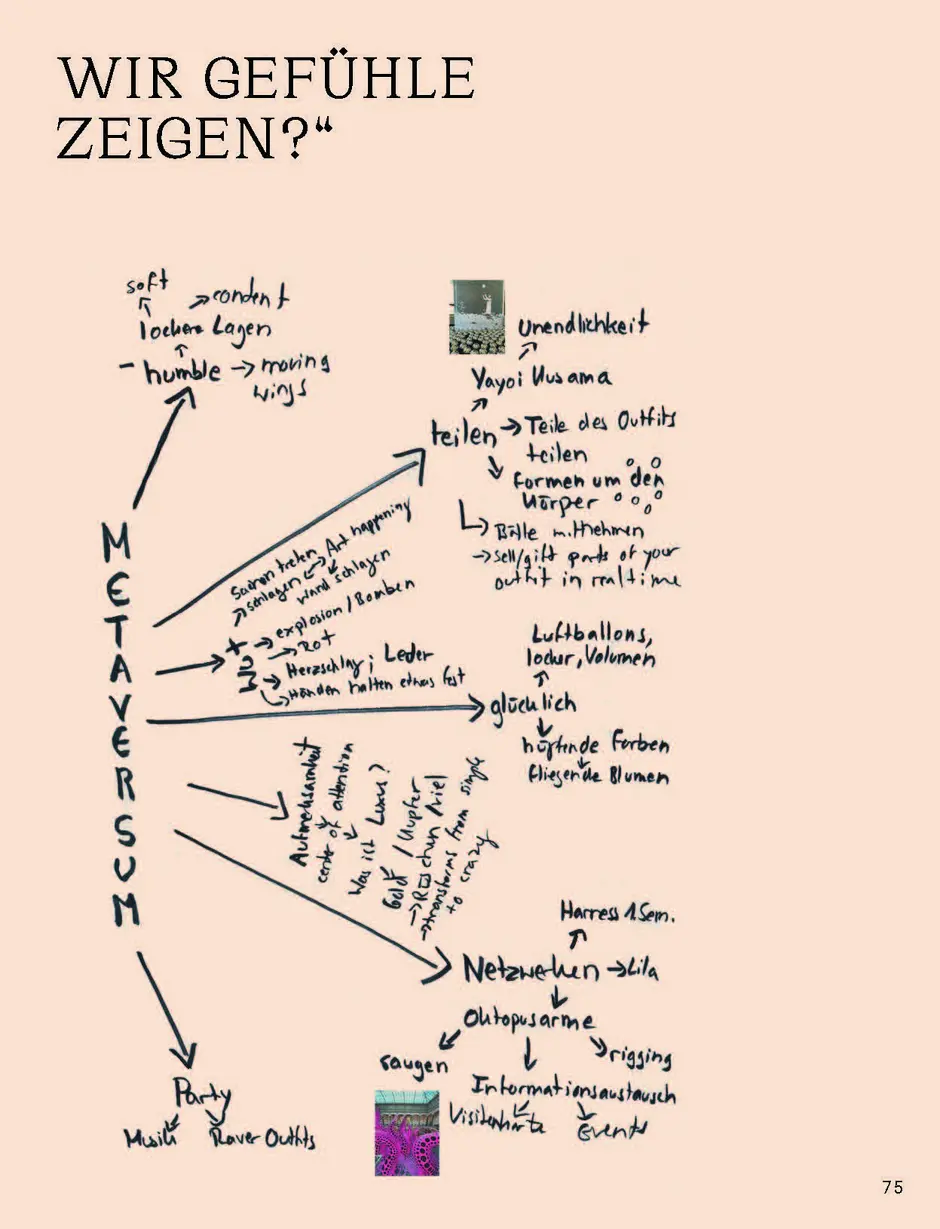 WIR GEFÜHLE
ZEIGEN?“
soft
condent
lockere Lagen
– humble → moving
wings
Unendlichkeit
Yayoi Kusama
teilen → Teile des Outfits
teilen
Formen um den
Körper
Bälle mitnehmen
→ sell/gift parts of your
outfit in realtime
METAVERSUM
Sachen treten
schlagen ↔ Art happening
Wand schlagen
→ explosion / Bomben
→ Rot
→ Herzschlag; Leder
Händen halten etwas fest
Luftballons,
locker, Volumen
glücklich
hüpfende Farben
fliegende Blumen
Aufmerksamkeit
center of attention
Was ist Luxus?
Gold / Kupfer
→ Rüschen / viel
→ transforms from simple
to crazy
Harness 1. Sem.
Netzwerken → Lila
Oktopusarme
saugen
rigging
Informationsaustausch
Visitenkarte
events
Party
Musik
Raver Outfits
75